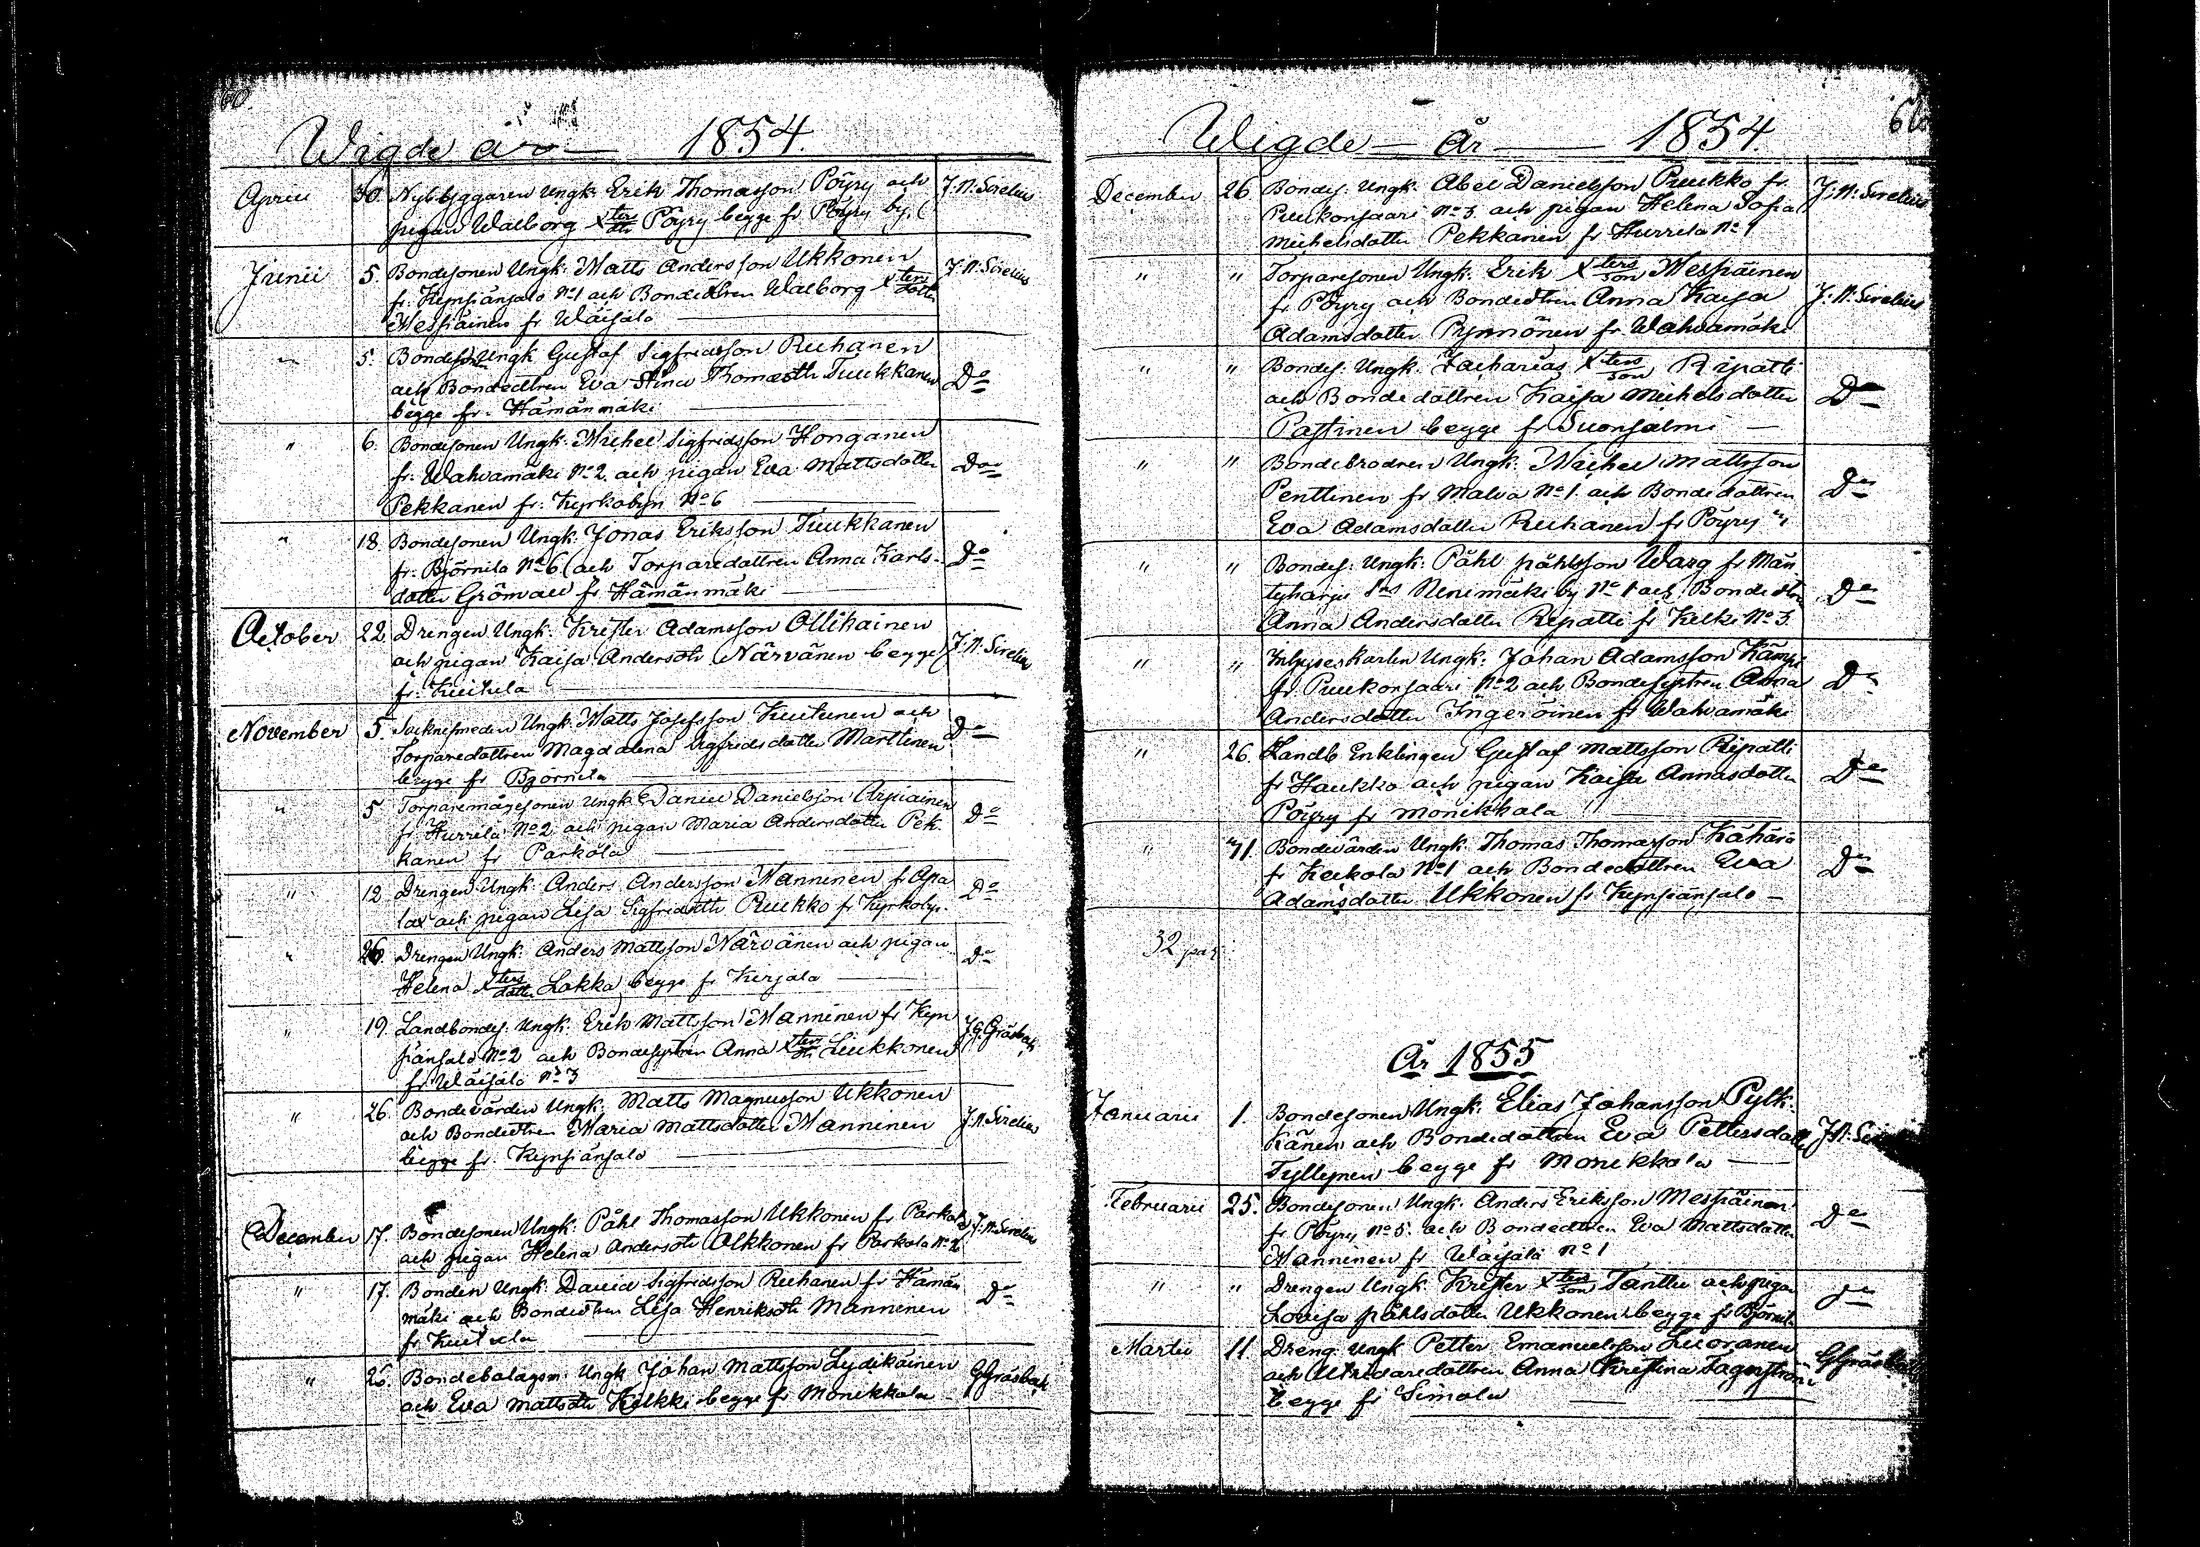 60.
Wigde år — 1854.
Aprill 30. Nybyggaren Ungk. Erik Thomasson Pöyry och J. N. Sirelius
pigan Walborg Xters dtr Pöyry begge fr Pöyry by.
Junii 5. Bondesonen Ungk: Matts Andersson Ukkonen J. N. Sirelius
fr. Kynsiänsalo No 1 och Bondedtren Walborg Xters dotter
Messiäinen fr Wäisälö
" 5. Bondeson Ungk Gustaf Sigfridsson Ruhanen
och Bondedtren Eva Stina Thomasdtr Tuukkanen Do
begge fr. Hämänmäki
" 6. Bondesonen Ungk: Michel Sigfridsson Honganen
fr. Wahvamäki No 2 och pigan Eva Mattsdotter Do
Pekkanen fr. Kyrkobyn No 6
" 18 Bondesonen Ungk: Jonas Eriksson Tuukkanen
fr. Björnilä No 6 och Torparedottren Anna Karls- Do
dotter Grönvall fr Hämänmäki
October 22. Drengen Ungk. Krister Adamsson Ollikainen
och pigan Kaisa Andersdtr Närvänen begge J. N. Sirelius
fr. Kuitula
November 5. Socknesmeden Ungk. Matts Josefsson Kuutunen och Do
Torparedottren Magdalena Sigfridsdotter Marttinen
begge fr Björnilä
" 5 Torparemågesonen Ungk: Daniel Danielsson Arpiainen
fr Hurrila No 2 och pigan Maria Andersdotter Pek- Do
kanen fr Parkola
" 12 Drengen Ungk: Anders Andersson Manninen fr Apa Do
lax och pigan Lisa Sigfridsdtr Puukko fr Kyrkoby.
" 26. Drengen Ungk: Anders Mattsson Närvänen och pigan Do
Helena Xters dotter Lakka begge fr Kirjala
" 19. Landbondes: Ungk: Erik Mattsson Manninen fr Kyn
siänsalo No 2 och Bondesystren Anna Xters dtr Liukkonen
fr Wäisälö No 3
" 26. Bondevärden Ungk: Matts Magnusson Ukkonen
och Bondedtren Maria Mattsdotter Manninen J. N. Sirelius
begge fr. Kynsiänsalo
December 17. Bondesonen Ungk: Påhl Thomasson Ukkonen fr Parkola J. N. Sirelius
och pigan Helena Andersdtr Ukkonen fr Parkola No 2
" 17. Bonden Ungk. David Sigfridsson Ruhanen fr Hämän
mäki och Bondedtren Lisa Henriksdtr Manninen Do
fr Kuitula
" 26. Bondebolagsm: Ungk Johan Mattsson Lydikäinen
och Eva Mattsdtr Kälkki begge fr Monikkala
Wigde — År — 1854.
December 26 Bondes: Ungk: Abel Danielsson Puukko fr J. N. Sirelius
Puukonsaari No 3 och pigan Helena Sofia
Michelsdotter Pekkanen fr Hurrila No 1
" " Torparesonen Ungk: Erik Xters son Messiäinen
fr Pöyry och Bondedtren Anna Kaisa J. N. Sirelius
Adamsdotter Pynnönen fr Wahvamäki
" " Bondes: Ungk. Zacharias Xters son Ripatti
och Bondedottren Kaisa Michelsdotter Do
Pastinen begge fr Suonsalmi
" " Bondebrodren Ungk: Michel Mattsson
Penttinen fr Malva No 1 och Bondedottren Do
Eva Adamsdotter Ruhanen fr Pöyry
" " Bondes: Ungk: Påhl Påhlsson Warg fr Män
tyharju Nenimäki by No 1 och Bondedtren Do
Anna Andersdotter Ripatti fr Kelki No 3.
" " Inhyseskarlen Ungk: Johan Adamsson Kämpi
fr Puukonsaari No 2 och Bondesystren Anna Do
Andersdotter Ingeröinen fr Wahvamäki
" 26. Landb Enklingen Gustaf Mattsson Ripatti
fr Haukko och pigan Kaisa Annasdotter Do
Pöyry fr Monikkala
" Bondevärden Ungk. Thomas Thomasson Kähärä
fr Keikola No 1 och Bondedottren Eva Do
Adamsdotter Ukkonen fr Kynsiänsalo
32 par
År 1855
Januarii 1. Bondesonen Ungk. Elias Johansson Pylk-
känen och Bondedottren Eva Pettersdotter
Tyllynen begge fr Monikkala
Februarii 25. Bondesonen Ungk. Anders Eriksson Messiäinen
fr Pöyry No 5. och Bondedtren Eva Mattsdotter Do
Manninen fr Wäisälö No 1
" " Drengen Ungk. Krister Xters son Tanttu och pigan
Lovisa Påhlsdotter Ukkonen begge fr Björnilä
Martii 11 Dreng. Ungk Petter Emanuelsson Luoranen
och Anna Kristina Fagerström
begge fr Simola